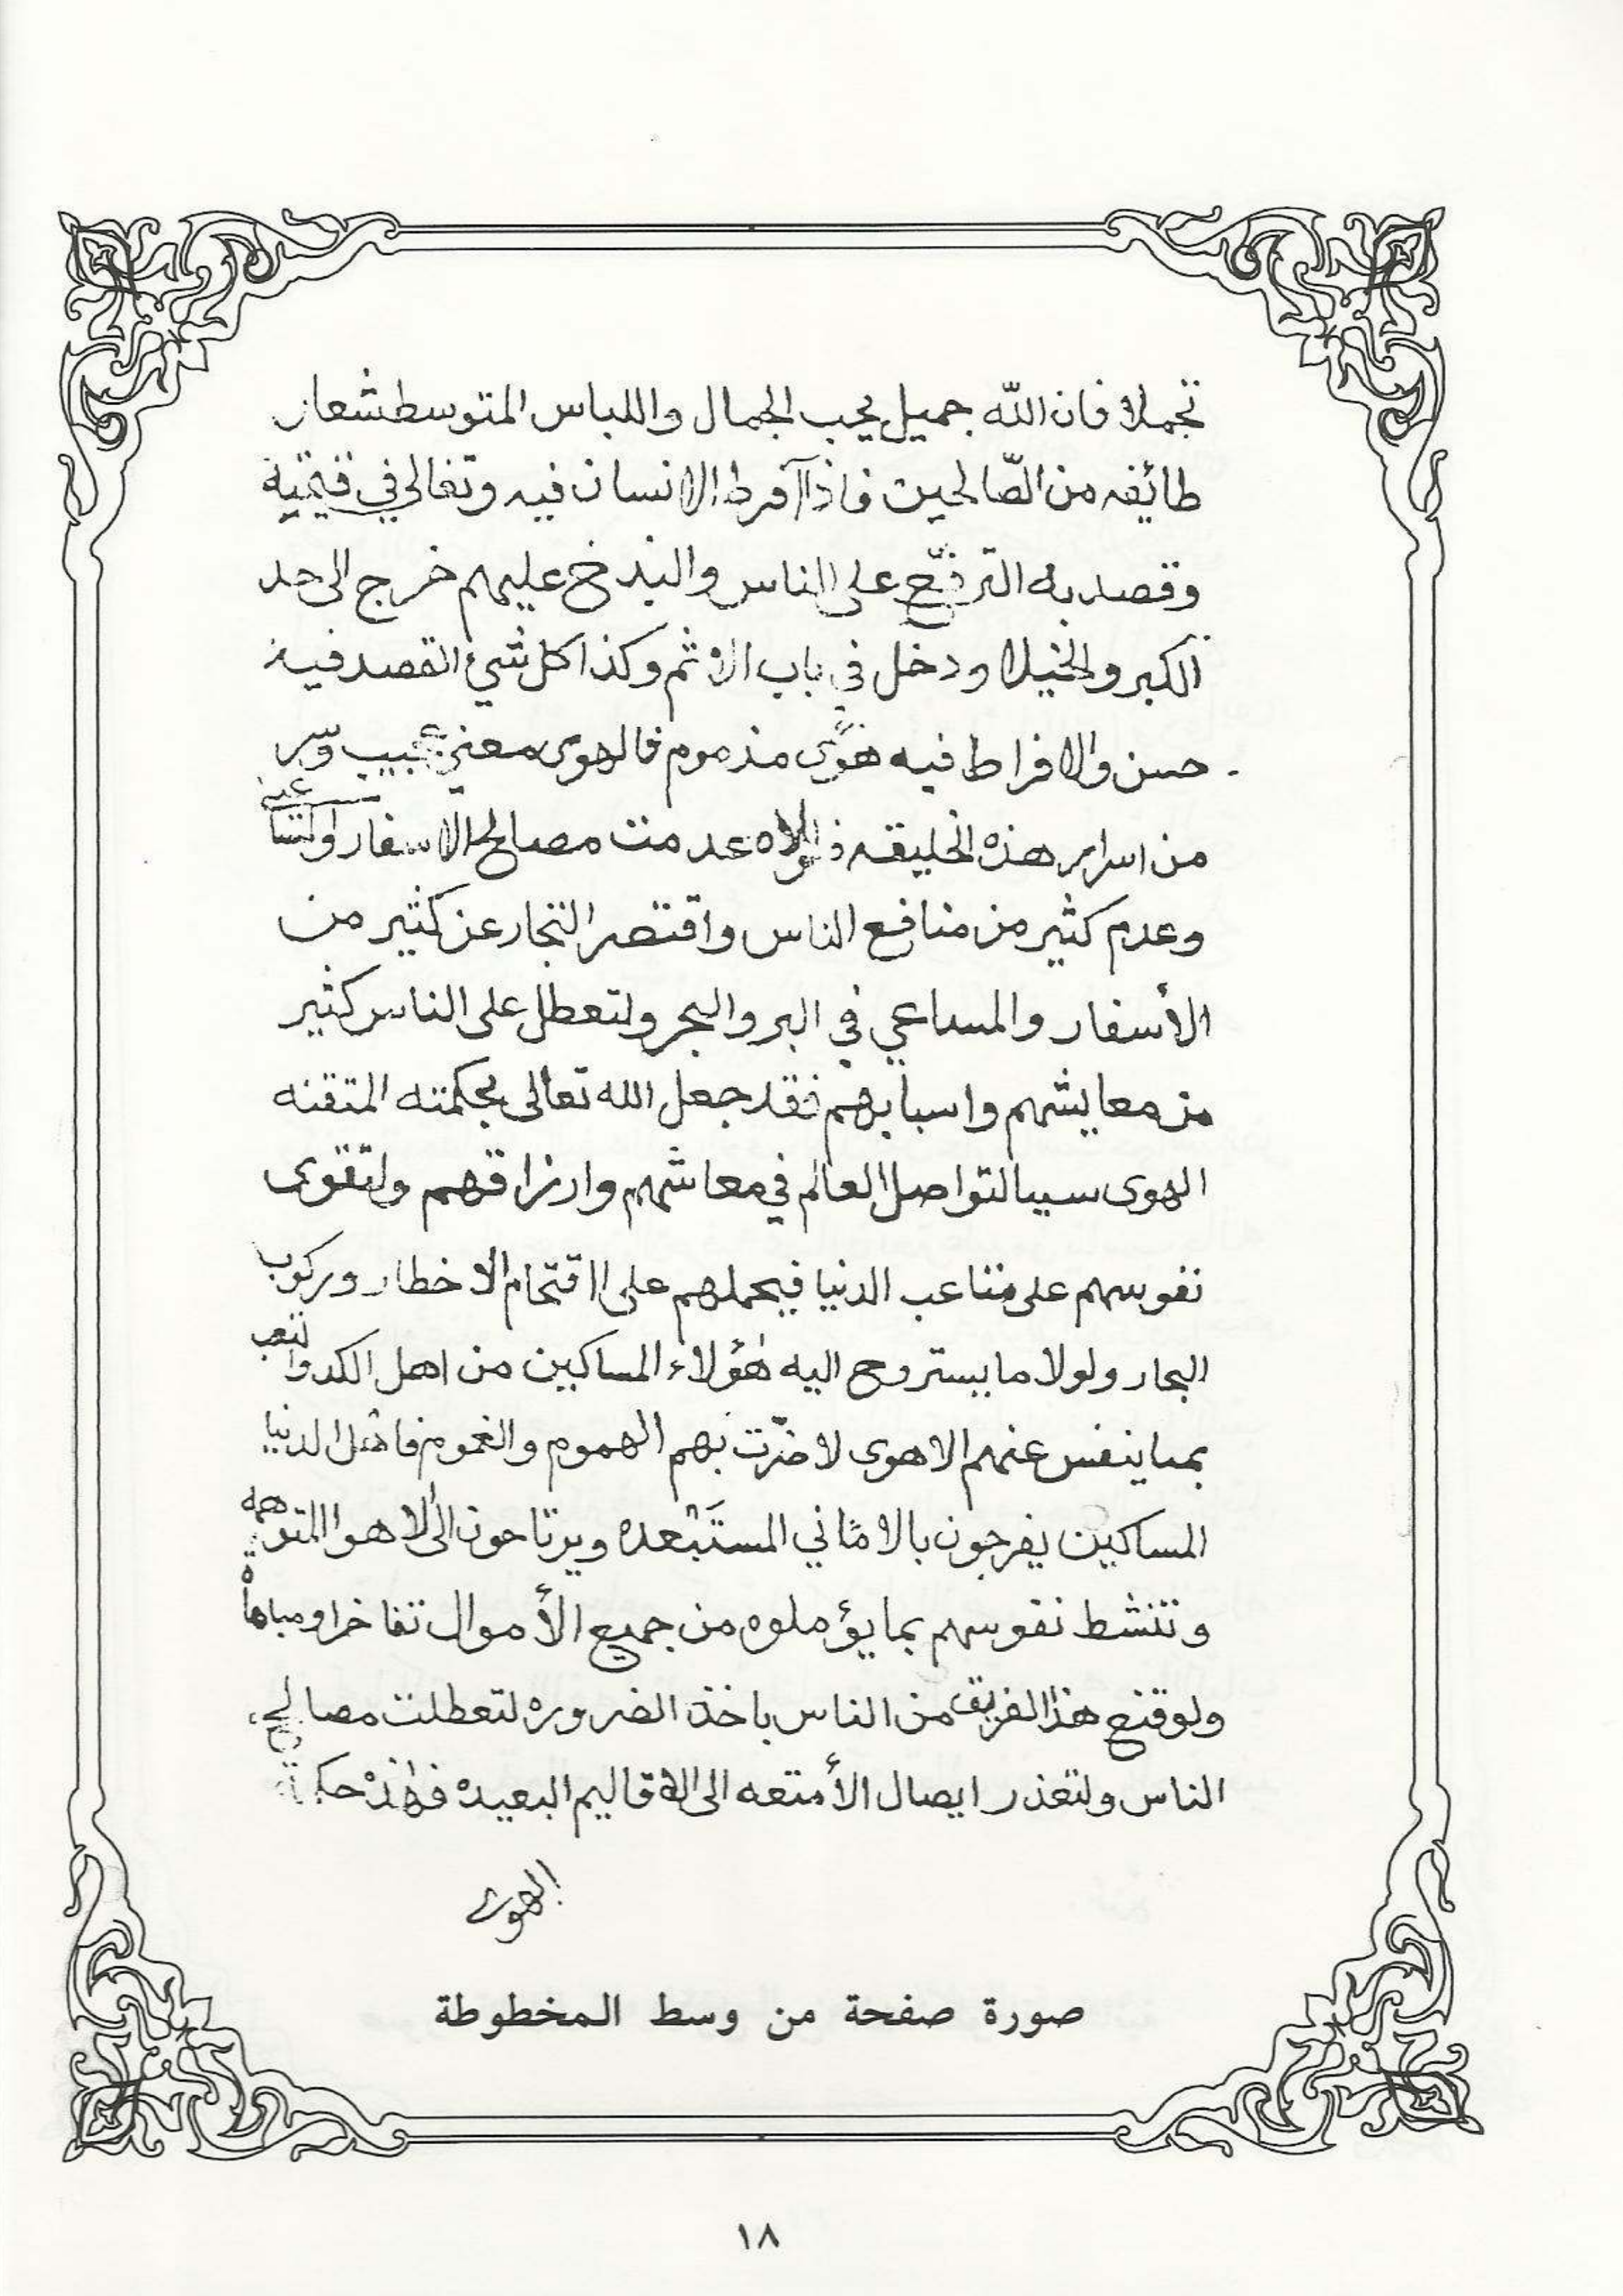 تجملا فان الله جميل يحب الجمال واللباس المتوسط شعار
طائفه من الصّالحين فاذا آفرط الانسان فيه وتغالى في قيمته
وقصد به الترفّع على الناس والبذخ عليهم خرج الى حد
الكبر والخيلا ودخل في باب الاثم وكذا كل شيء القصد فيه
حسن والافراط فيه هوًى مذموم فالهوى معنى عجيب وسر
من اسرار هذه الخليقه فلولاه عدمت مصالح الاسفار
وعدم كثير من منافع الناس واقتصر التجار عن كثير من
الأسفار والمساعي في البر والبحر ولتعطل على الناس كثير
من معايشهم واسبابهم فقد جعل الله تعالى بحكمته المتقنه
الهوى سببا لتواصل العالم في معاشهم وارزاقهم ولتقوى
نفوسهم على متاعب الدنيا فيحملهم على اقتحام الاخطار وركوب
البحار ولولا ما يستروح اليه هؤلاء المساكين من اهل الكد والتعب
بما ينفس عنهم الاهوى لاضرّت بهم الهموم والغموم فاهل الدنيا
المساكين يفرحون بالاماني المستَبْعده ويرتاحون الى الاهوا المتوهمه
وتنشط نفوسهم بما يؤملوه من جميع الأموال تفاخرا ومباهاة
ولو قنع هذا الفريق من الناس باخذ الضروره لتعطلت مصالح
الناس ولتعذر ايصال الأمتعه الى الاقاليم البعيده فهذه حكمة
الهوى
صورة صفحة من وسط المخطوطة
١٨